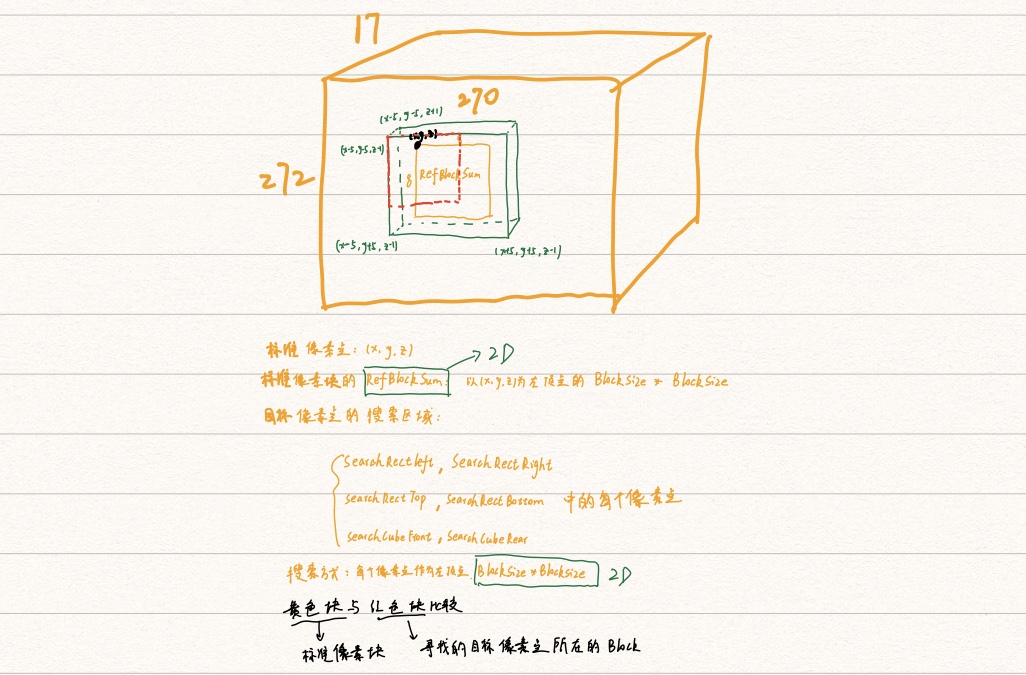 17
270
(x-5, y-5, z+1)
(x,y,z)
(x-5, y-5, z-1)
272
8 RefBlockSum
(x-5, y+5, z-1)
(x+5, y+5, z-1)
标准像素点: (x, y, z)
2D
标准像素块的 RefBlockSum: 以(x, y, z)为左顶点的 BlockSize * BlockSize
目标像素点的搜索区域:
SearchRectleft, SearchRectRight
SearchRectTop, SearchRectBottom 中的每个像素点
SearchCubeFront, SearchCubeRear
搜索方式: 每个像素点作为左顶点 BlockSize * BlockSize 2D
黄色块与红色块比较
标准像素块 寻找的目标像素点所在的Block